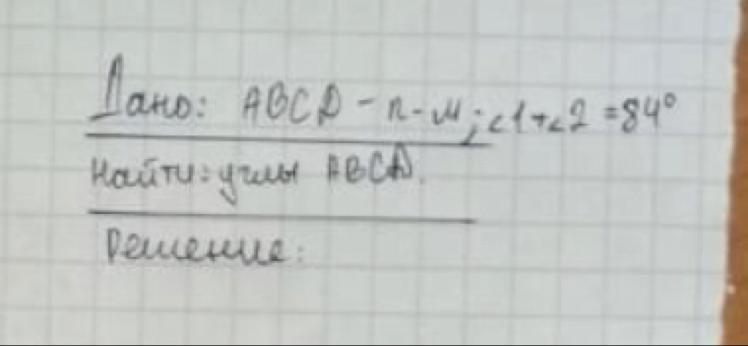 Дано: ABCD - п-м; <1+<2 = 84°
Найти: углы ABCD.
Решение: